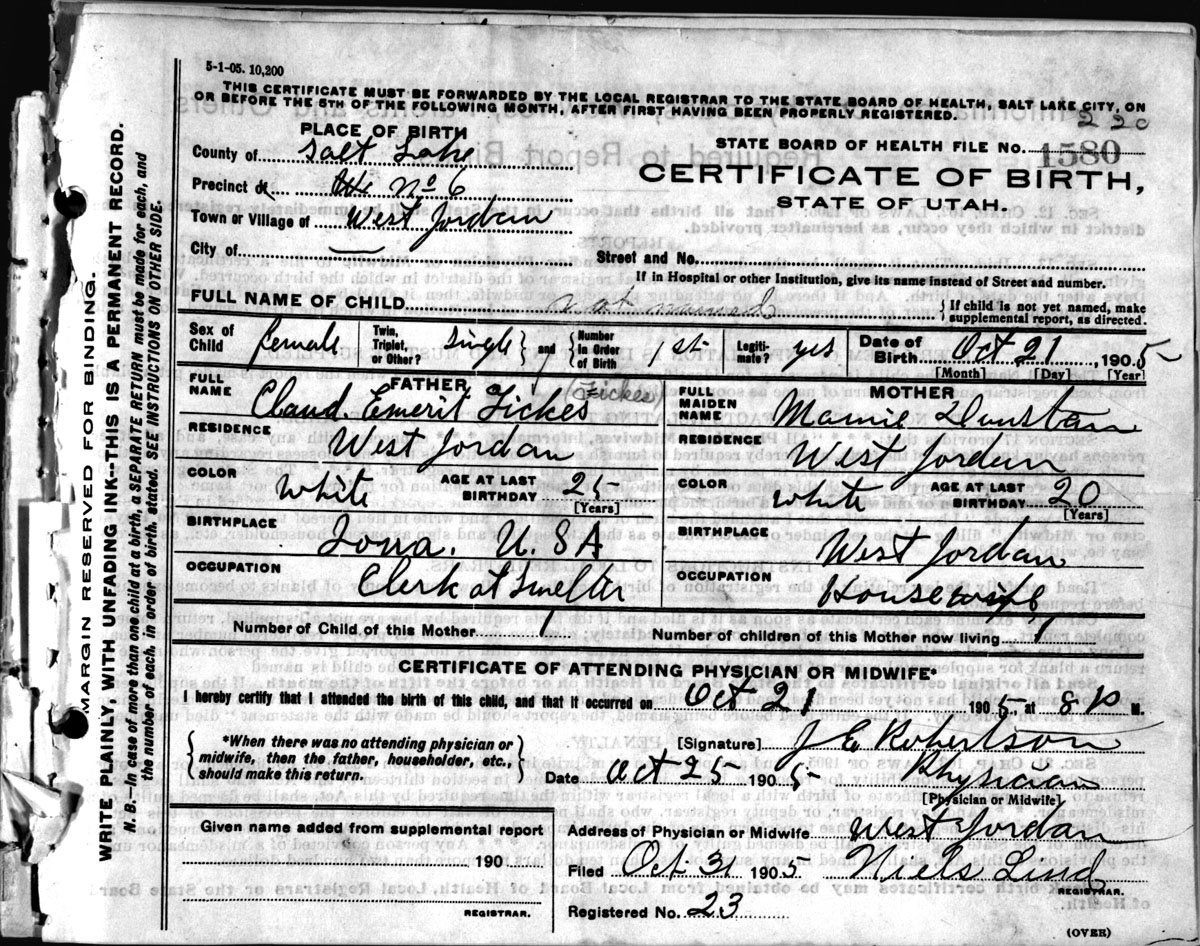 5-1-05. 10,200
THIS CERTIFICATE MUST BE FORWARDED BY THE LOCAL REGISTRAR TO THE STATE BOARD OF HEALTH, SALT LAKE CITY, ON
OR BEFORE THE 5TH OF THE FOLLOWING MONTH, AFTER FIRST HAVING BEEN PROPERLY REGISTERED.
220
PLACE OF BIRTH
STATE BOARD OF HEALTH FILE NO. 1580
County of Salt Lake
CERTIFICATE OF BIRTH,
Precinct No 6
STATE OF UTAH.
Town or Village of West Jordan
City of
Street and No.
If in Hospital or other Institution, give its name instead of Street and number.
FULL NAME OF CHILD not named
If child is not yet named, make
supplemental report, as directed.
Sex of Child female Twin, Triplet, or Other? Single and Number in Order of Birth 1st Legiti-mate? yes Date of Birth Oct 21, 1905
[Month] [Day] [Year]
FATHER
FULL NAME Claud. Emerit Fickes (Fickes
RESIDENCE West Jordan
COLOR White AGE AT LAST BIRTHDAY 25
[Years]
BIRTHPLACE Iowa. U.SA
OCCUPATION Clerk at Smelter
MOTHER
FULL MAIDEN NAME Mamie Dunstan
RESIDENCE West Jordan
COLOR White AGE AT LAST BIRTHDAY 20
[Years]
BIRTHPLACE West Jordan
OCCUPATION Housewife
Number of Child of this Mother 1 Number of children of this Mother now living 1
CERTIFICATE OF ATTENDING PHYSICIAN OR MIDWIFE*
I hereby certify that I attended the birth of this child, and that it occurred on Oct 21 1905, at 8 P M.
*When there was no attending physician or
midwife, then the father, householder, etc.,
should make this return.
[Signature] J E Robertson
Date Oct 25 1905 Physician
[Physician or Midwife]
Given name added from supplemental report
190
REGISTRAR.
Address of Physician or Midwife West Jordan
Filed Oct 31 1905 Niels Lind
REGISTRAR.
Registered No. 23
(OVER)
MARGIN RESERVED FOR BINDING.
WRITE PLAINLY, WITH UNFADING INK--THIS IS A PERMANENT RECORD.
N. B.—In case of more than one child at a birth, a SEPARATE RETURN must be made for each, and
the number of each, in order of birth, stated. SEE INSTRUCTIONS ON OTHER SIDE.